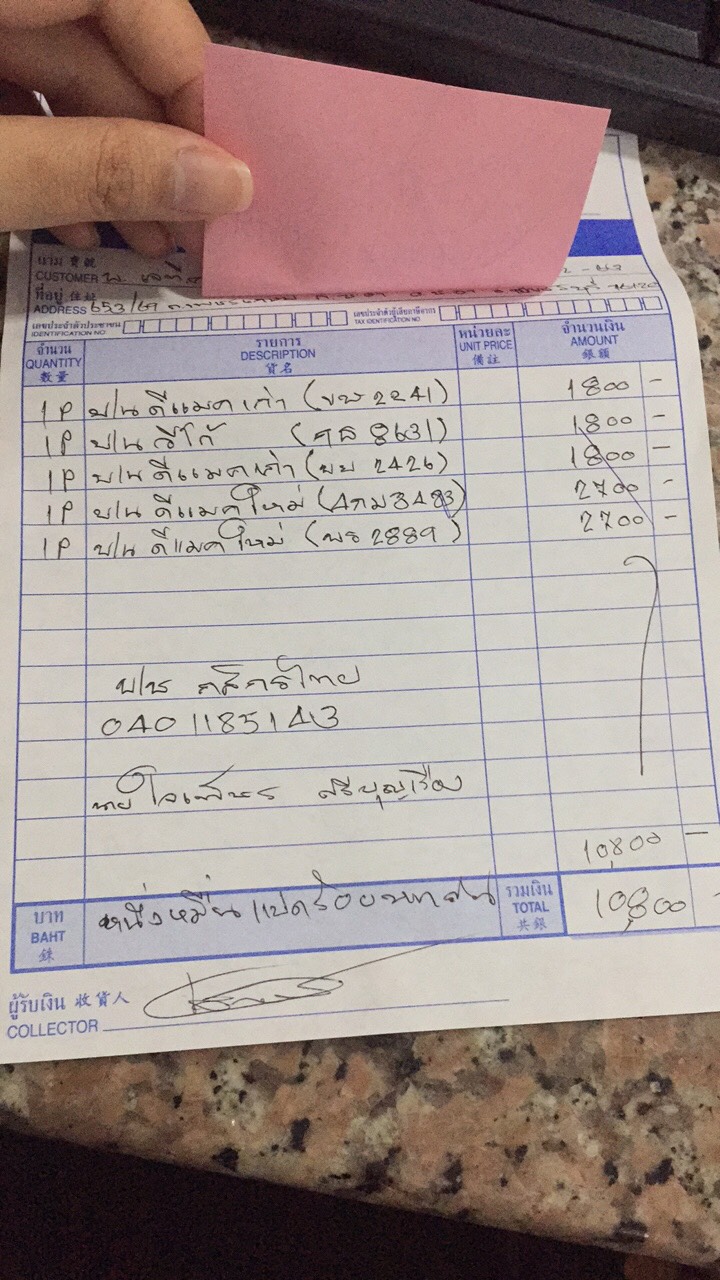 นาม 寶號
CUSTOMER
ที่อยู่ 住址
ADDRESS 653/69
เลขประจำตัวประชาชน เลขประจำตัวผู้เสียภาษีอากร
IDENTIFICATION NO TAX IDENTIFICATION NO.
จำนวน รายการ หน่วยละ จำนวนเงิน
QUANTITY DESCRIPTION UNIT PRICE AMOUNT
數量 貨名 備註 銀額
1 P ผ/น ดีแมคเก่า (ขพ 2241) 1800 -
1 P ผ/น วีโก้ 8631) 1800 -
1 P ผ/น ดีแมคเก่า (บบ 2426) 1800 -
1 P ผ/น ดีแมคใหม่ (4กม3483) 2700 -
1 P ผ/น ดีแมคใหม่ (พร 2889) 2700 -
กสิกรไทย
0401185143
นาย ศรีบุญเรือง
10800 -
บาท หนึ่งหมื่นแปดร้อยบาทถ้วน รวมเงิน 10,800 -
BAHT TOTAL
銖 共銀
ผู้รับเงิน 收貨人
COLLECTOR